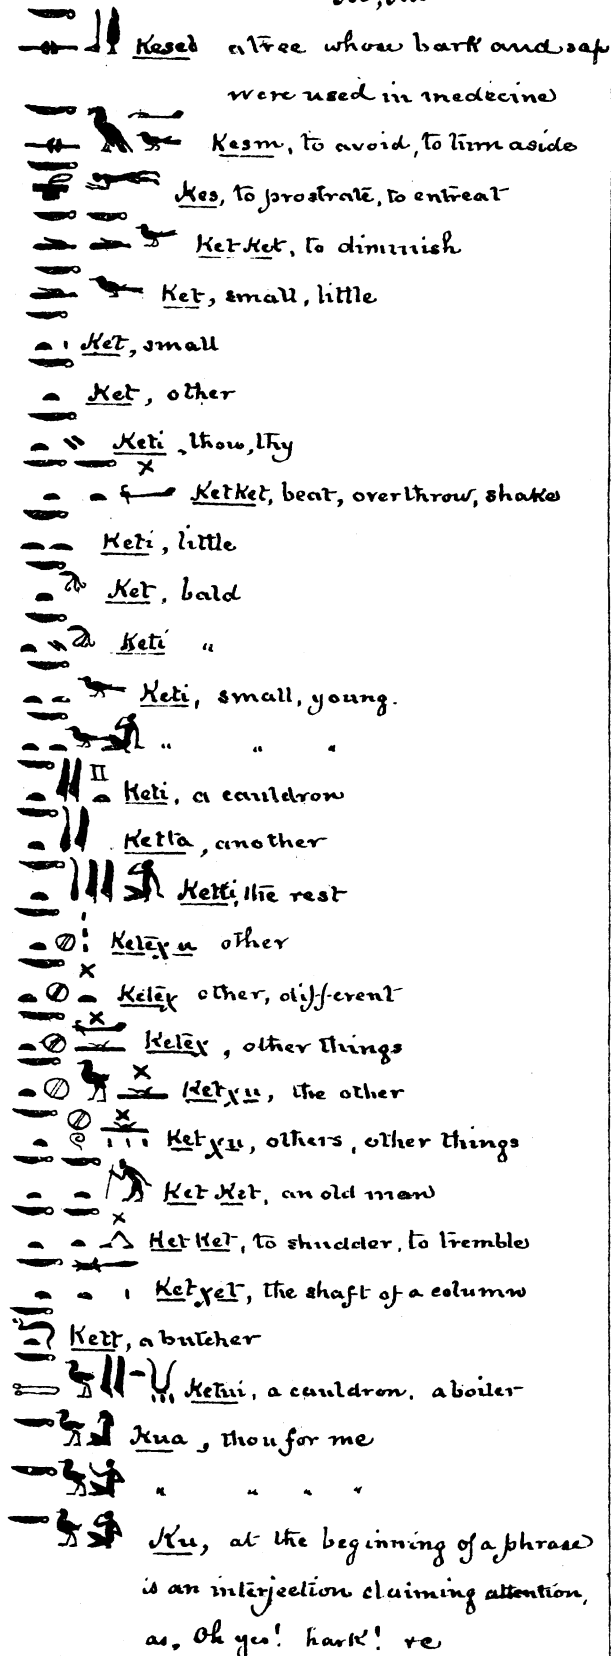 Kesed a tree whose bark and sap
were used in medecine
Kesm, to avoid, to turn aside
Kes, to prostrate, to entreat
Ket Ket, to diminish
Ket, small, little
Ket, small
Ket, other
Keti, thow, thy
KetKet, beat, overthrow, shake
Keti, little
Ket, bald
Keti "
Keti, small, young.
" " "
Keti, a cauldron
Ketta, another
Ketti, the rest
Ketexu other
Ketex other, different
Ketex, other things
Ketxu, the other
Ketxu, others, other things
Ket Ket, an old man
Ket Ket, to shudder, to tremble
Ketxet, the shaft of a column
Kett, a butcher
Ketui, a cauldron, a boiler
Kua, thou for me
" " " "
Ku, at the beginning of a phrase
is an interjection claiming attention,
as, Oh yes! hark!